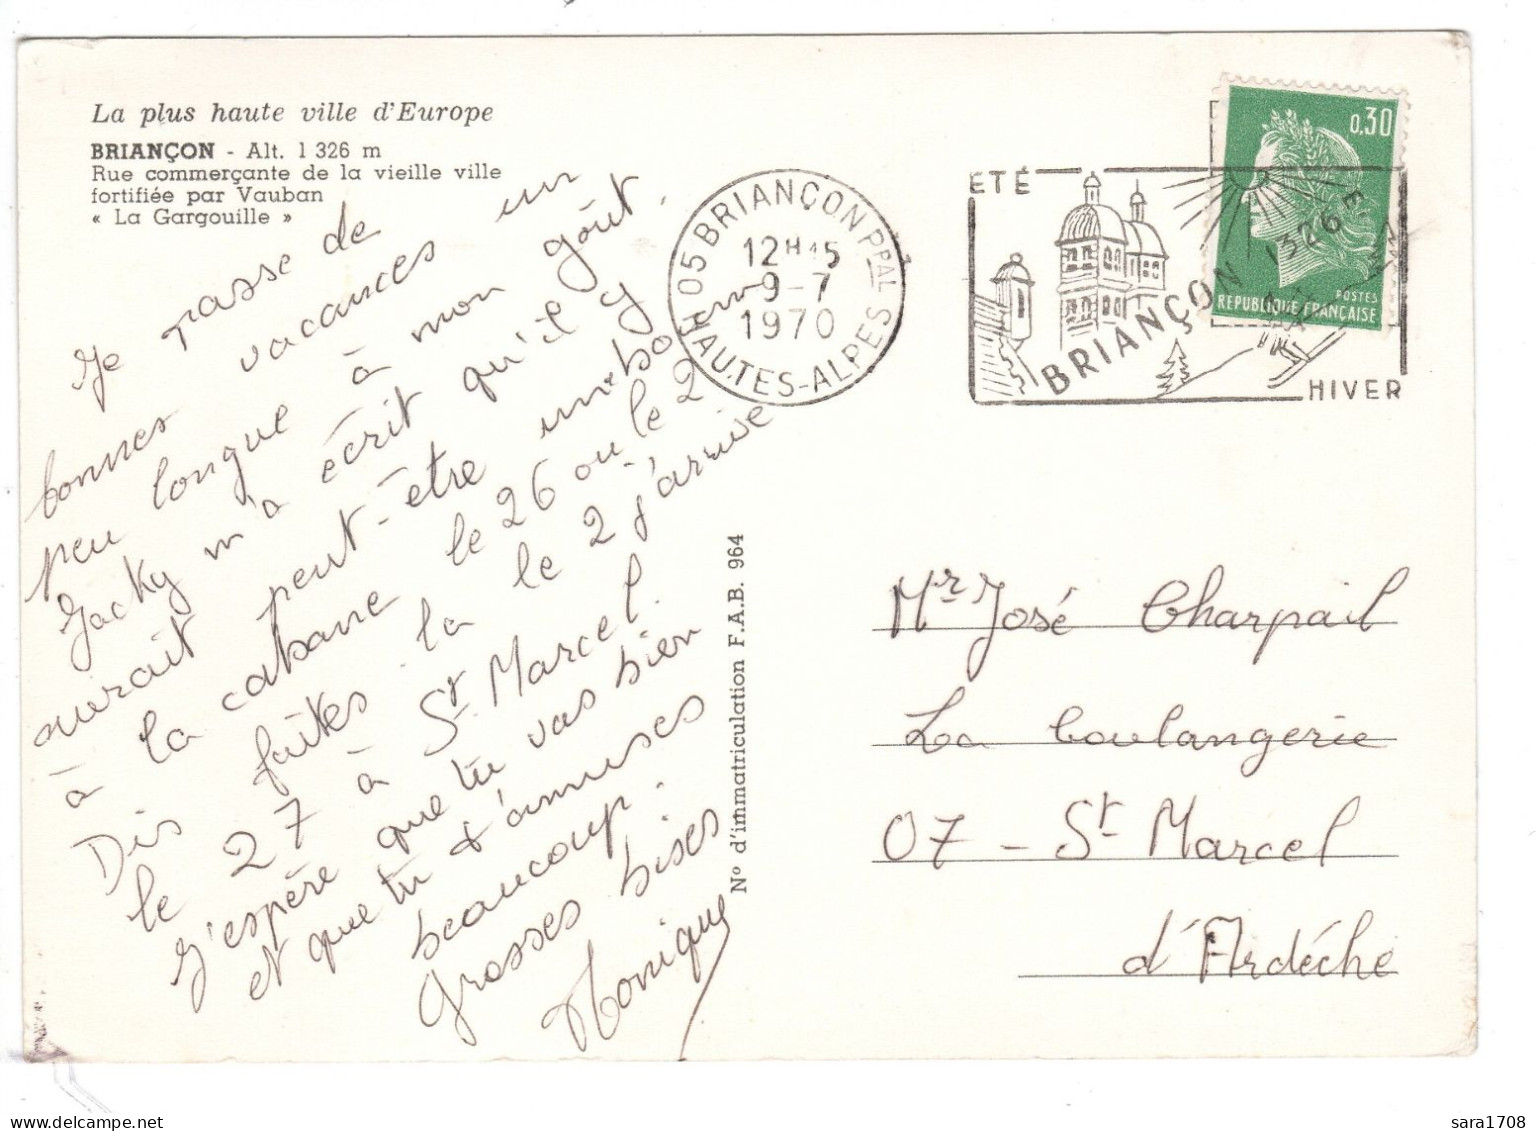 La plus haute ville d'Europe
BRIANÇON - Alt. 1 326 m
Rue commerçante de la vieille ville
fortifiée par Vauban
« La Gargouille »
Je passe de
bonnes vacances un
peu longue à mon goût.
Jacky m'a écrit qu'il y
aurait peut-être une
à la cabane le 26 ou le 2
Dis faites la le 2 j'arrive
le 27 à St Marcel.
J'espère que tu vas bien
et que tu t'amuses
beaucoup.
Grosses bises
Monique
05 BRIANÇON PPAL
12H15
9-7
1970
HAUTES-ALPES
ÉTÉ
BRIANÇON 1326
HIVER
0,30
POSTES
REPUBLIQUE FRANÇAISE
N° d'immatriculation F.A.B. 964
Mr José Charpail
La boulangerie
07 - St Marcel
d'Ardèche
sara1708